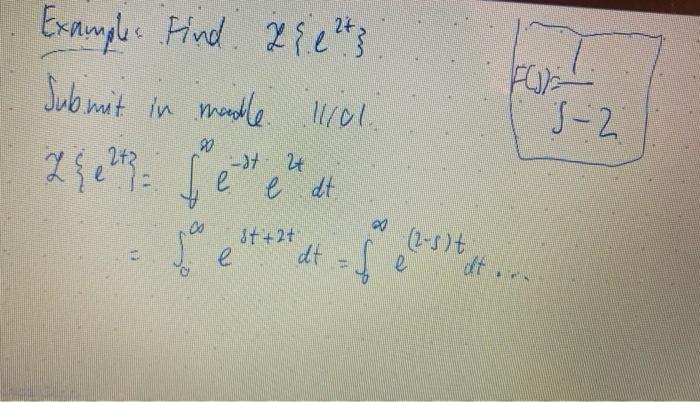 Example: Find ℒ{e^{2t}}
F(s)= 1/(s-2)
Submit in moodle 11/01.
ℒ{e^{2t}}= ∫_0^∞ e^{-st} e^{2t} dt
= ∫_0^∞ e^{st+2t} dt = ∫_0^∞ e^{(2-s)t} dt ...